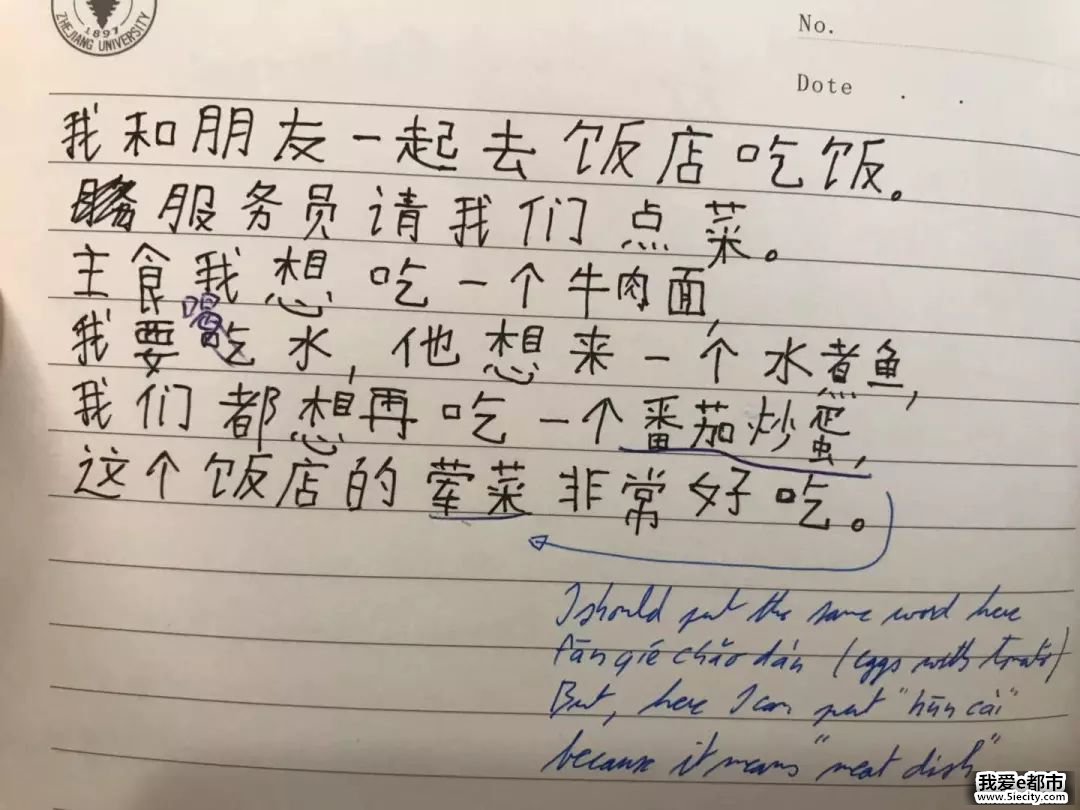 1897
ZHEJIANG UNIVERSITY
No.
Dote . .
我和朋友一起去饭店吃饭。
服务员请我们点菜。
主食我想吃一个牛肉面,
我要喝水,他想来一个水煮鱼,
我们都想再吃一个番茄炒蛋,
这个饭店的荤菜非常好吃。
I should put the same word here
fān qié chǎo dán (eggs with tomato)
But, here I can put "hūn cài"
because it means "meat dish"
我爱e都市
www.5iecity.com